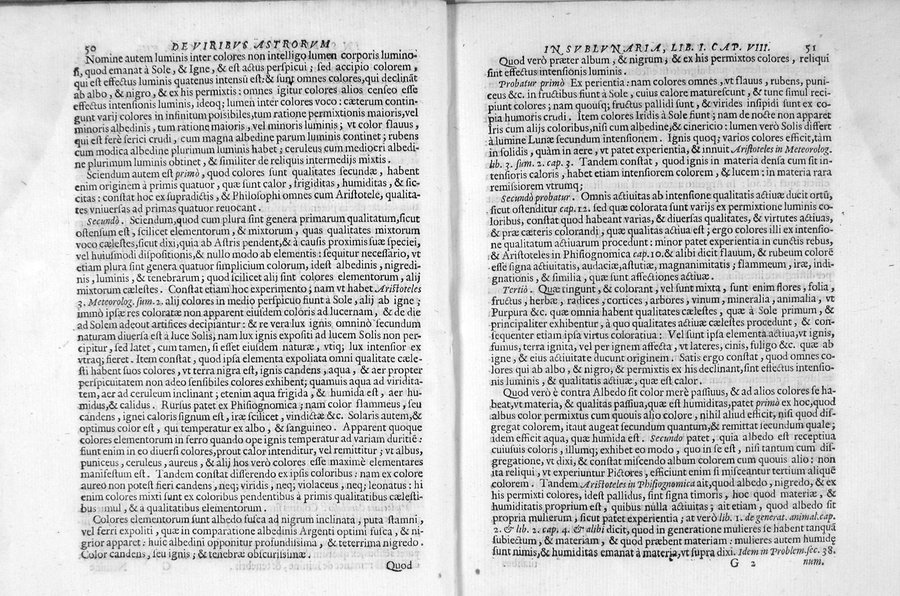 50 DE VIRIBVS ASTRORVM
Nomine autem luminis inter colores non intelligo lumen corporis lumino-
si, quod emanat à Sole, & Igne, & est actus perspicui; sed accipio colorem,
qui est effectus luminis quatenus intensũ est: & sunt omnes colores, qui declinãt
ab albo, & nigro, & ex his permixtis: omnes igitur colores alios censeo esse
effectus intensionis luminis, ideoq; lumen inter colores voco: cæterum contin-
gunt varij colores in infinitum poisibiles, tum ratione permixtionis maioris, vel
minoris albedinis, tum ratione maioris, vel minoris luminis; vt color flauus,
qui est ferè serici crudi, cum magna albedine parum luminis continet; rubens
cum modica albedine plurimum luminis habet; ceruleus cum mediocri albedi-
ne plurimum luminis obtinet, & similiter de reliquis intermedijs mixtis.
Sciendum autem est primò, quod colores sunt qualitates secundæ, habent
enim originem à primis quatuor, quæ sunt calor, frigiditas, humiditas, & sic-
citas: constat hoc ex supradictis, & Philosophi omnes cum Aristotele, qualita-
tes vniuersas ad primas quatuor reuocant.
Secundò. Sciendum, quod cum plura sint genera primarum qualitatum, sicut
ostensum est, scilicet elementorum, & mixtorum, quas qualitates mixtorum
voco cælestes, sicut dixi, quia ab Astris pendent, & à causis proximis suæ speciei,
vel huiusmodi dispositionis, & nullo modo ab elementis: sequitur necessariò, vt
etiam plura sint genera quatuor simplicium colorum, idest albedinis, nigredi-
nis, luminis, & tenebrarum; quod scilicet alij sint colores elementorum, alij
mixtorum cælestes. Constat etiam hoc experimento; nam vt habet Aristoteles
3. Meteorolog. sum. 2. alij colores in medio perspicuo fiunt à Sole, alij ab igne;
imnò ipsæ res coloratæ non apparent eiusdem coloris ad lucernam, & de die
ad Solem adeout artifices decipiantur: & re vera lux ignis omninò secundum
naturam diuersa est à luce Solis; nam lux ignis expositi ad lucem Solis non per-
cipitur, sed latet, cum tamen, si esset eiusdem naturæ, vtiq; lux intensior ex
vtraq; fieret. Item constat, quod ipsa elementa expoliata omni qualitate cæle-
sti habent suos colores, vt terra nigra est, ignis candens, aqua, & aer propter
perspicuitatem non adeo sensibiles colores exhibent; quamuis aqua ad viridita-
tem, aer ad ceruleum inclinant; etenim aqua frigida, & humida est, aer hu-
midus, & calidus. Rursus patet ex Phisiognomica; nam color flammeus, seu
candens, ignei caloris signum est, iræ scilicet, vindictæ &c. Solaris autem, &
optimus color est, qui temperatur ex albo, & sanguineo. Apparent quoque
colores elementorum in ferro quando ope ignis temperatur ad variam duritiē:
fiunt enim in eo diuersi colores, prout calor intenditur, vel remittitur; vt albus,
puniceus, ceruleus, aureus, & alij hos verò colores esse maximè elementares
manifestum est. Tandem constat differendo ex ipsis coloribus: nam ex colore
aureo non potest fieri candens, neq; viridis, neq; violaceus, neq; leonatus: hi
enim colores mixti sunt ex coloribus pendentibus à primis qualitatibus cælesti-
bus simul, & a qualitatibus elementorum.
Colores elementorum sunt albedo fusca ad nigrum inclinata, puta stamni,
vel ferri expoliti, quæ in comparatione albedinis Argenti optimi fusca, & ni-
grior apparet: huic albedini opponitur profundissima, & teterrima nigredo.
Color candens, seu ignis; & tenebræ obscurissimæ.
Quod
IN SVBLVNARIA, LIB. I. CAP. VIII. 51
Quod verò præter album, & nigrum; & ex his permixtos colores, reliqui
sint effectus intensiònis luminis.
Probatur primò Experientia: nam colores omnes, vt flauus, rubens, puni-
ceus &c. in fructibus fiunt à Sole, cuius calore maturescunt, & tunc simul reci-
piunt colores; nam quousq; fructus pallidi sunt, & virides insipidi sunt ex co-
pia humoris crudi. Item colores Iridis à Sole fiunt; nam de nocte non apparet
Iris cum alijs coloribus, nisi cum albedine, & cinericio: lumen verò Solis differt
à lumine Lunæ secundum intensionem. Ignis quoq; varios colores efficit, tàm
in solidis, quàm in aere, vt patet experientia, & innuit Aristoteles in Meteorolog.
lib. 3. sum. 2. cap. 3. Tandem constat, quod ignis in materia densa cum sit in-
tensioris caloris, habet etiam intensiorem colorem, & lucem: in materia rara
remissiorem vtrumq;
Secundò probatur. Omnis actiuitas ab intensione qualitatis actiuæ ducit ortũ,
sicut ostenditur cap. 12. sed quæ colorata sunt varijs ex permixtione luminis co-
loribus, constat quod habeant varias, & diuersas qualitates, & virtutes actiuas,
& præ cæteris colorandi, quæ qualitas actiua est; ergo colores illi ex intensio-
ne qualitatum actiuarum procedunt: minor patet experientia in cunctis rebus,
& Aristoteles in Phisiognomica cap. 10. & alibi dicit flauum, & rubeum colorē
esse signa actiuitatis, audaciæ, astutiæ, magnanimitatis; flammeum, iræ, indi-
gnationis, & similia, quæ sunt affectiones actiuæ.
Tertiò. Quæ tingunt, & colorant, vel sunt mixta, sunt enim flores, folia,
fructus, herbæ, radices, cortices, arbores, vinum, mineralia, animalia, vt
Purpura &c. quæ omnia habent qualitates cælestes, quæ à Sole primum, &
principaliter exhibentur, à quo qualitates actiuæ cælestes procedunt, & con-
sequenter etiam ipsa virtus coloratiua: Vel sunt ipsa elementa actiua, vt ignis,
fumus, terra ignita, vel per ignem affecta, vt lateres, cinis, fuligo &c. quæ ab
igne, & eius actiuitate ducunt originem. Satis ergo constat, quod omnes co-
lores qui ab albo, & nigro, & permixtis ex his declinant, sint effectus intensio-
nis luminis, & qualitatis actiuæ, quæ est calor.
Quod verò è contra Albedo sit color merè passiuus, & ad alios colores se ha-
beat, vt materia, & qualitas passiua, quæ est humiditas, patet primo ex hoc, quod
albus color permixtus cum quouis alio colore, nihil aliud efficit, nisi quod dis-
gregat colorem, itaut augeat secundum quantum, & remittat secundum quale;
idem efficit aqua, quæ humida est. Secundò patet, quia albedo est receptiua
cuiusuis coloris, illumq; exhibet eo modo, quo in se est, nisi tantum cum dis-
gregatione, vt dixi, & constat miscendo album colorem cum quouis alio: non
ita reliqui, vt experiuntur Pictores, efficiunt enim si misceantur tertium aliquē
colorem. Tandem Aristoteles in Phisiognomica ait, quod albedo, nigredo, & ex
his permixti colores, idest pallidus, sint signa timoris, hoc quod materiæ, &
humiditatis proprium est, quibus nulla actiuitas; ait etiam, quod albedo sit
propria mulierum, sicut patet experientia; at verò lib. 1. de generat. animal. cap.
2. & lib. 2. cap. 4. & alibi dicit, quod in generatione mulieres se habent tanquã
subiectum, & materiam, & quod præbent materiam: mulieres autem humidę
sunt nimis, & humiditas emanat à materia, vt supra dixi. Idem in Problem. sec. 38.
G 2 num.